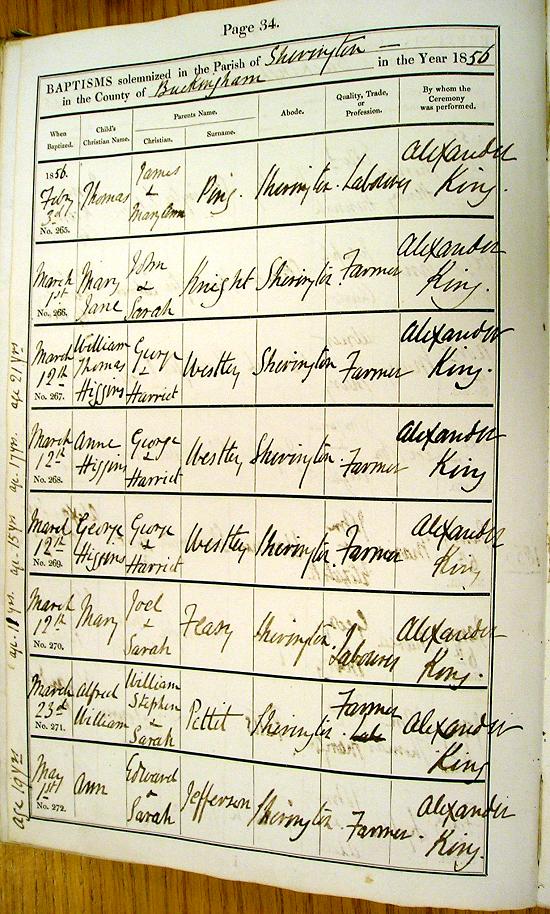 Page 34.
BAPTISMS solemnized in the Parish of Sherington in the Year 1856
in the County of Buckingham
When Baptized. Child's Christian Name. Parents Name. Christian. Surname. Abode. Quality, Trade, or Profession. By whom the Ceremony was performed.
1856. Feby 3rd No. 265. Thomas James & Mary Ann Sherington Labourer Alexander King.
March 1st No. 266. Mary Jane John & Sarah Knight Sherington Farmer Alexander King.
March 12th No. 267. William Thomas Higgins George & Harriet Westley Sherington Farmer Alexander King.
March 12th No. 268. Anne Higgins George & Harriet Westley Sherington Farmer Alexander King
March 12th No. 269. George Higgins George & Harriet Westley Sherington Farmer Alexander King
March 12th No. 270. Mary Joel & Sarah Feasy Sherington Labourer Alexander King.
March 23d No. 271. Alfred William William Stephen & Sarah Pettit Sherington Farmer Alexander King
May 1st No. 272. Ann Edward & Sarah Jefferson Sherington Farmer Alexander King.
age 21 yrs
age 17 yrs.
age 15 yrs
age 19 yrs